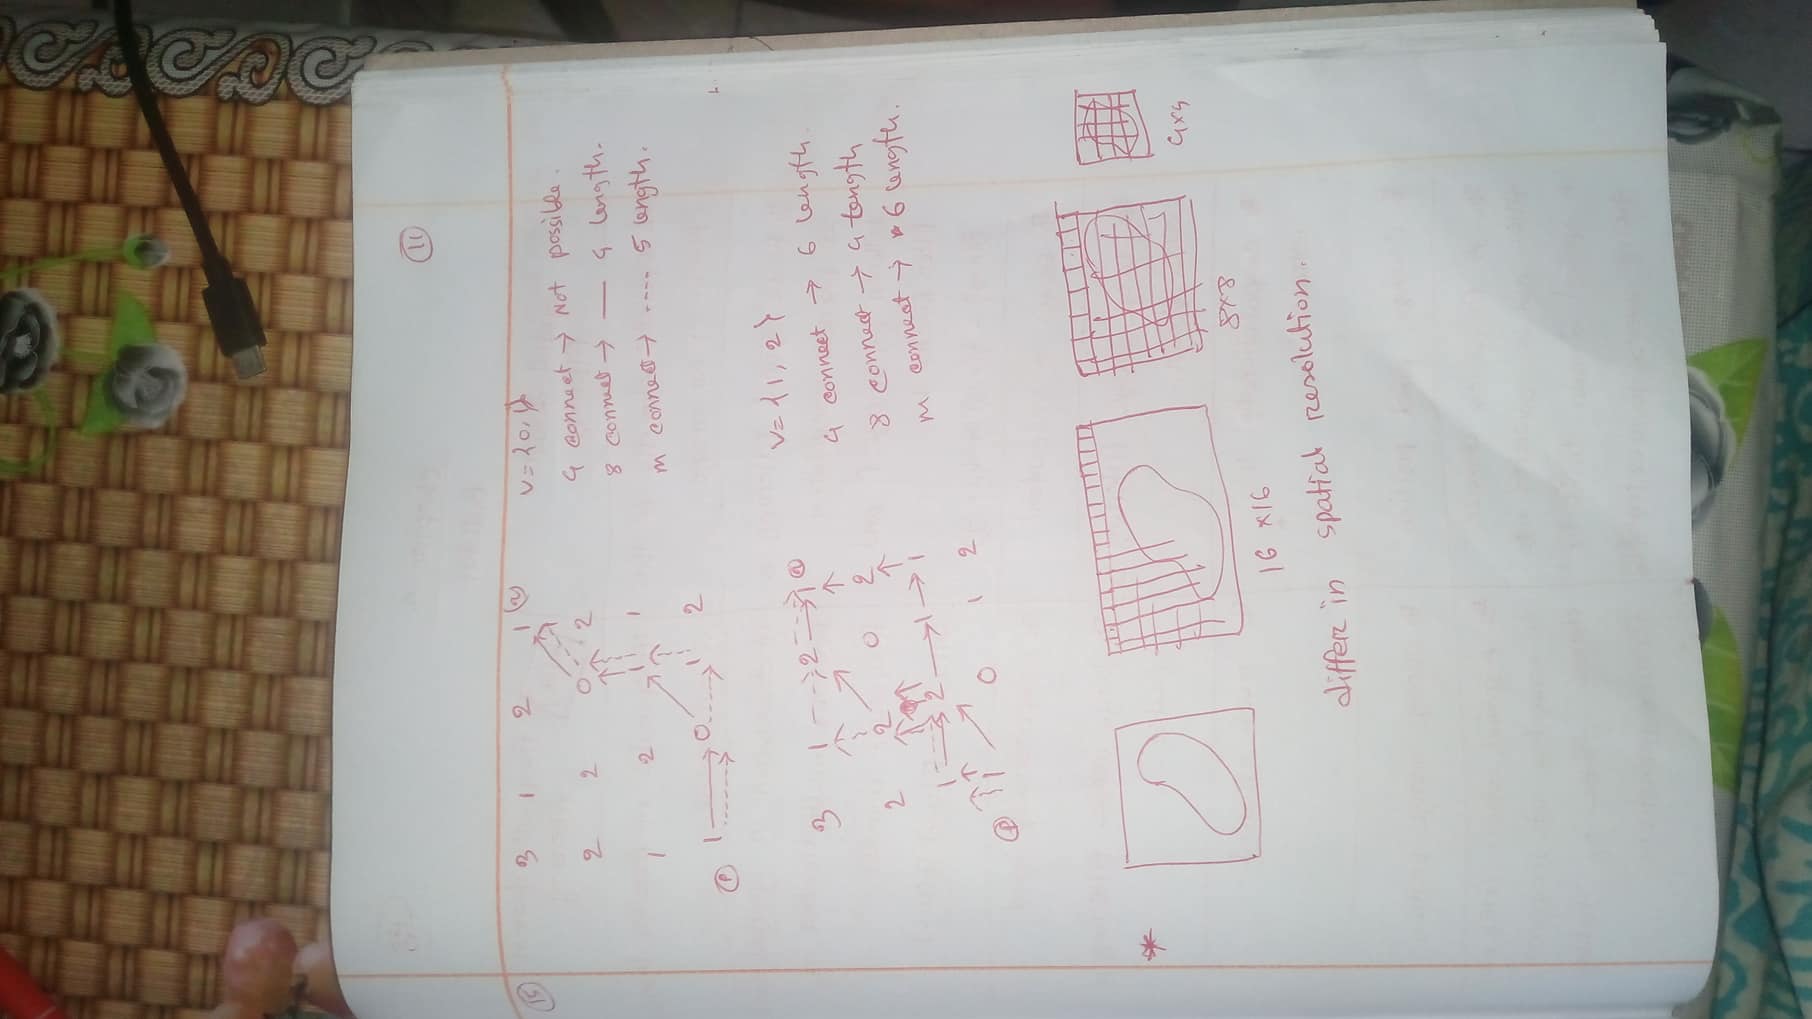 11
15
3 1 2 1 (q)
2 2 0 2
1 2 1 1
(P) 1 0 1 2
V = {0, 1}
4 connect → Not possible.
8 connect → — 4 length.
m connect → ---- 5 length.
3 1 2 1 (q)
2 2 0 2
1 2 1 1
(P) 1 0 1 2
V = {1, 2}
4 connect → 6 length.
8 connect → 4 length
m connect → 6 length.
*
16 × 16
8×8
4×4
differ in spatial resolution.